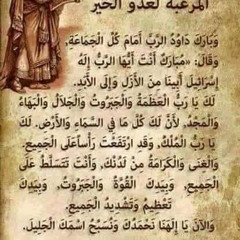 المرعبة لعدو الخير
وَبَارَكَ دَاوُدُ الرَّبَّ أَمَامَ كُلِّ الْجَمَاعَةِ,
وَقَالَ: «مُبَارَكٌ أَنْتَ أَيُّهَا الرَّبُّ إِلهُ
إِسْرَائِيلَ أَبِينَا مِنَ الأَزَلِ وَإِلَى الأَبَدِ.
لَكَ يَا رَبُّ الْعَظَمَةُ وَالْجَبَرُوتُ وَالْجَلاَلُ وَالْبَهَاءُ
وَالْمَجْدُ, لأَنَّ لَكَ كُلَّ مَا فِي السَّمَاءِ وَالأَرْضِ. لَكَ
يَا رَبُّ الْمُلْكُ, وَقَدِ ارْتَفَعْتَ رَأْساً عَلَى الْجَمِيعِ.
وَالْغِنَى وَالْكَرَامَةُ مِنْ لَدُنْكَ, وَأَنْتَ تَتَسَلَّطُ عَلَى
الْجَمِيعِ, وَبِيَدِكَ الْقُوَّةُ وَالْجَبَرُوتُ, وَبِيَدِكَ
تَعْظِيمُ وَتَشْدِيدُ الْجَمِيعِ.
وَالآنَ يَا إِلهَنَا نَحْمَدُكَ وَنُسَبِّحُ اسْمَكَ الْجَلِيلَ.